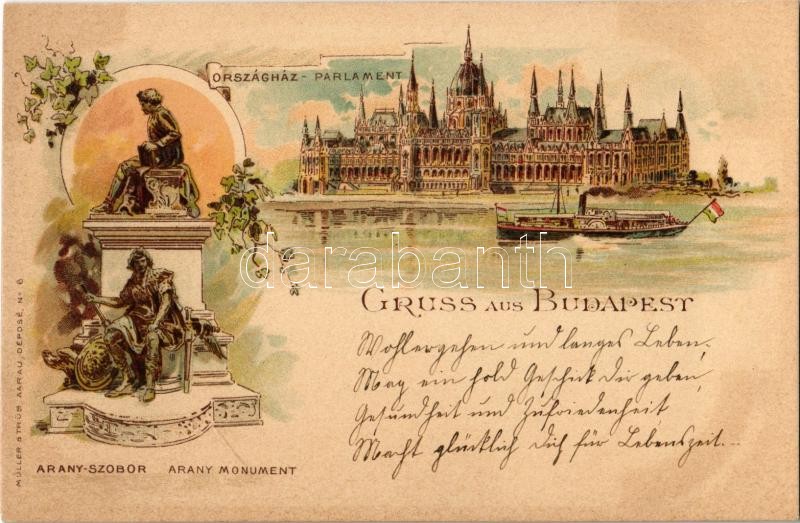 ORSZÁGHÁZ - PARLAMENT
darabanth
GRUSS AUS BUDAPEST
Wohlergehen und langes Leben,
Mag ein hold Geschick Dir geben,
Gesundheit und Zufriedenheit
Macht glücklich Dich für Lebenszeit...
ARANY-SZOBOR ARANY MONUMENT
MÜLLER & TRÜB, AARAU, DÉPOSÉ, No 6